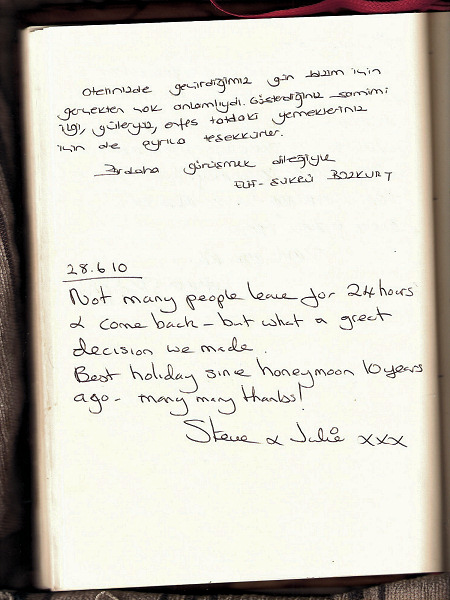 Otelinizde geçirdiğimiz gün bizim için
gerçekten çok anlamlıydı. Gösterdiğiniz samimi
ilgi, güleryüz, enfes tatdaki yemekleriniz
için de ayrıca teşekkürler.
Birdaha görüşmek dileğiyle
ELİF - ŞÜKRÜ BOZKURT
28.6.10
Not many people leave for 24 hours
& come back - but what a great
decision we made.
Best holiday since honeymoon 10 years
ago - many many thanks!
Steve & Julie xxx